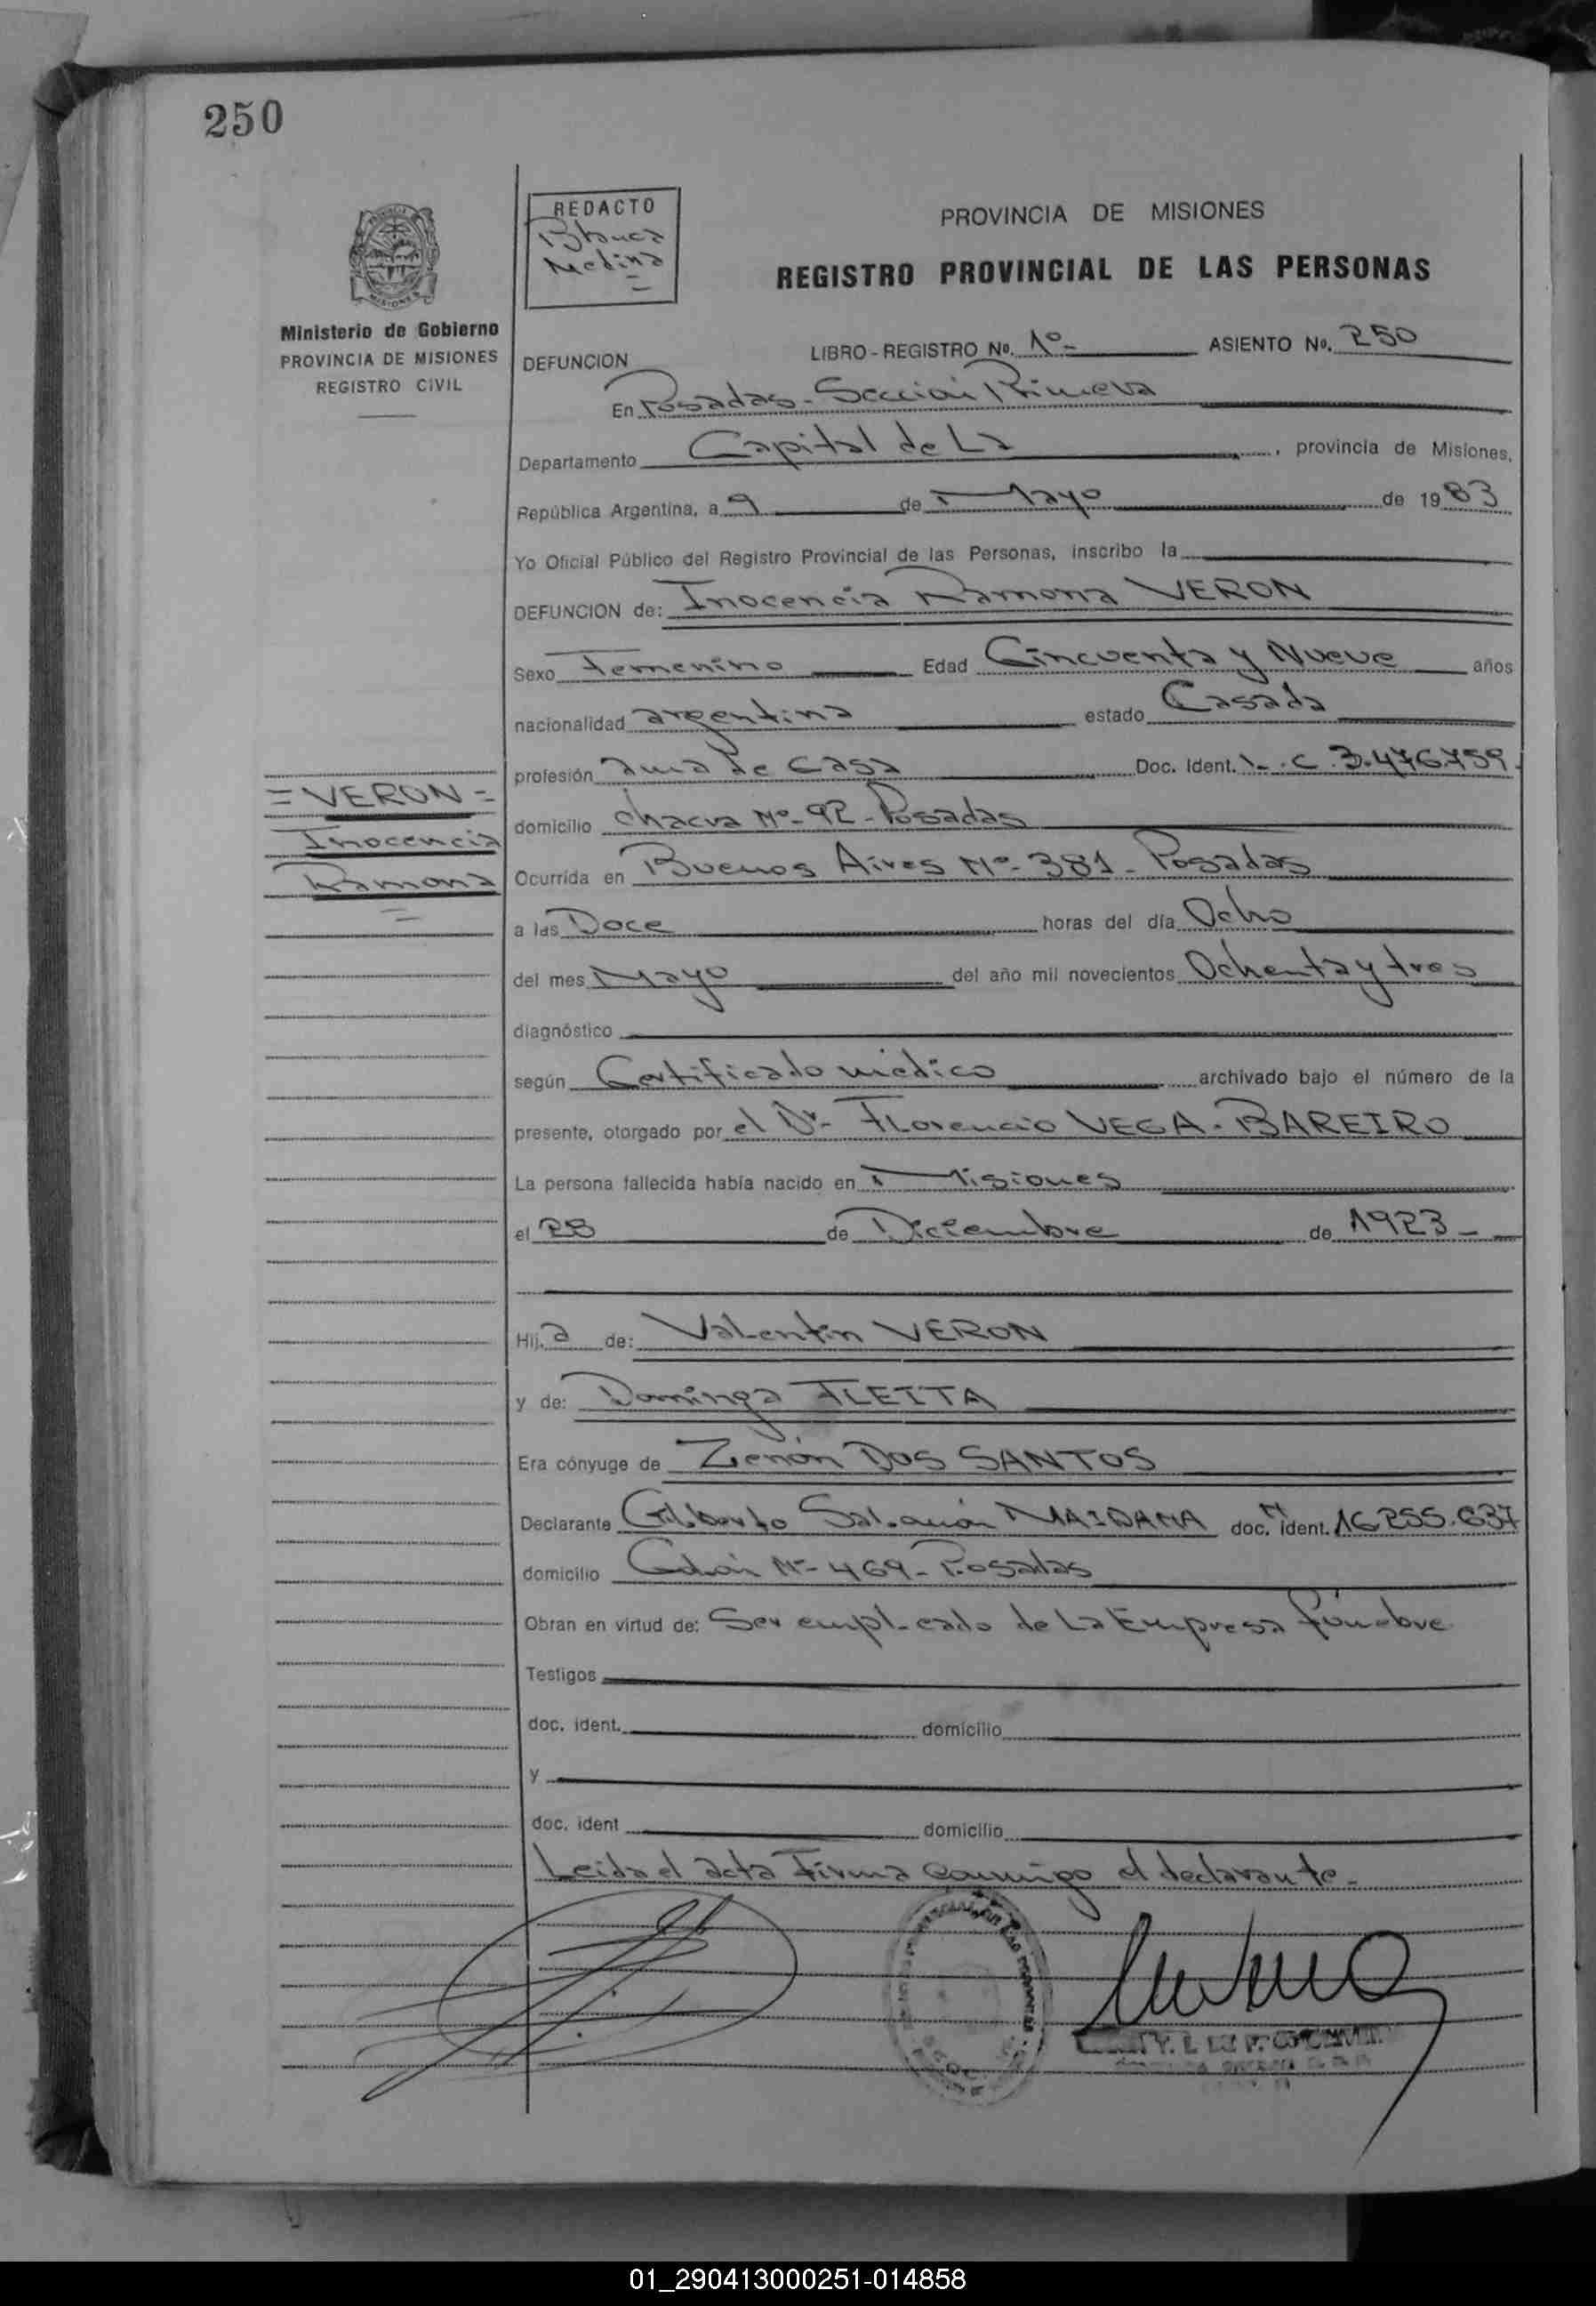 250
REDACTO
Blanca
Medina
PROVINCIA DE MISIONES
REGISTRO PROVINCIAL DE LAS PERSONAS
MISIONES
Ministerio de Gobierno
PROVINCIA DE MISIONES
REGISTRO CIVIL
DEFUNCION LIBRO - REGISTRO No. 1º- ASIENTO No. 250
En Posadas - Sección Primera
Departamento Capital de La, provincia de Misiones,
República Argentina, a 9 de Mayo de 1983
Yo Oficial Público del Registro Provincial de las Personas, inscribo la
DEFUNCION de: Inocencia Ramona VERON
Sexo Femenino Edad Cincuenta y Nueve años
nacionalidad argentina estado Casada
profesión ama de casa Doc. Ident. L.C 3.476.759.
= VERON =
Inocencia
Ramona
=
domicilio chacra Nº- 92 - Posadas
Ocurrida en Buenos Aires Nº- 381 - Posadas
a las Doce horas del día Ocho
del mes Mayo del año mil novecientos Ochenta y tres
diagnóstico
según Certificado médico archivado bajo el número de la
presente, otorgado por el Dr. Florencio VEGA - BAREIRO
La persona fallecida había nacido en Misiones
el 28 de Diciembre de 1923 -
Hij a de: Valentín VERON
y de: Dominga FLEITA
Era cónyuge de Zenón DOS SANTOS
Declarante Gilberto MAIDANA doc. ident. M 16.255.637
domicilio Colón Nº- 469 - Posadas
Obran en virtud de: Ser empleado de La Empresa fúnebre
Testigos
doc. ident. domicilio
y
doc. ident domicilio
Leida el acta Firma conmigo el declarante -
01_290413000251-014858